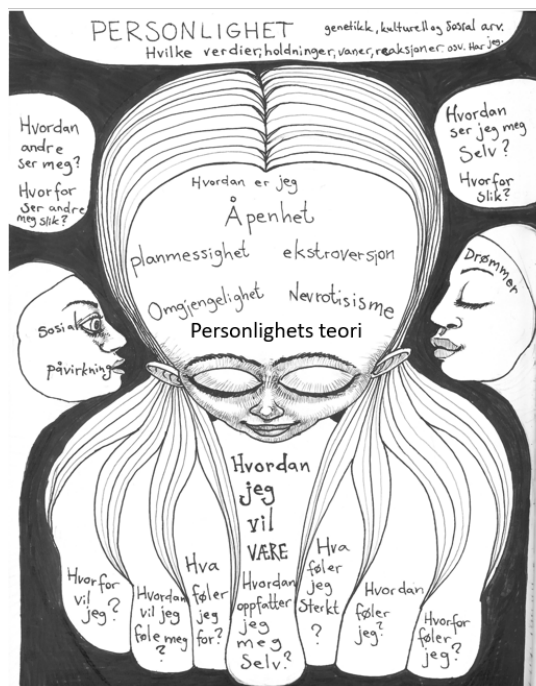 PERSONLIGHET
genetikk, kulturell og Sosial arv.
Hvilke verdier, holdninger, vaner, reaksjoner osv. Har jeg.
Hvordan
andre
ser meg?
Hvorfor
ser andre
meg slik?
Hvordan
ser jeg meg
Selv?
Hvorfor
Slik?
Hvordan er jeg
Åpenhet
planmessighet ekstroversjon
Omgjengelighet Nevrotisisme
Personlighets teori
Sosial
påvirkning
Drømmer
Hvordan
jeg
vil
VÆRE
Hvordan
oppfatter
jeg
meg
Selv?
Hvorfor
vil
jeg?
Hvordan
vil jeg
føle meg
?
Hva
føler
jeg
for?
Hva
føler
jeg
Sterkt
?
Hvordan
føler
jeg?
Hvorfor
føler
jeg?